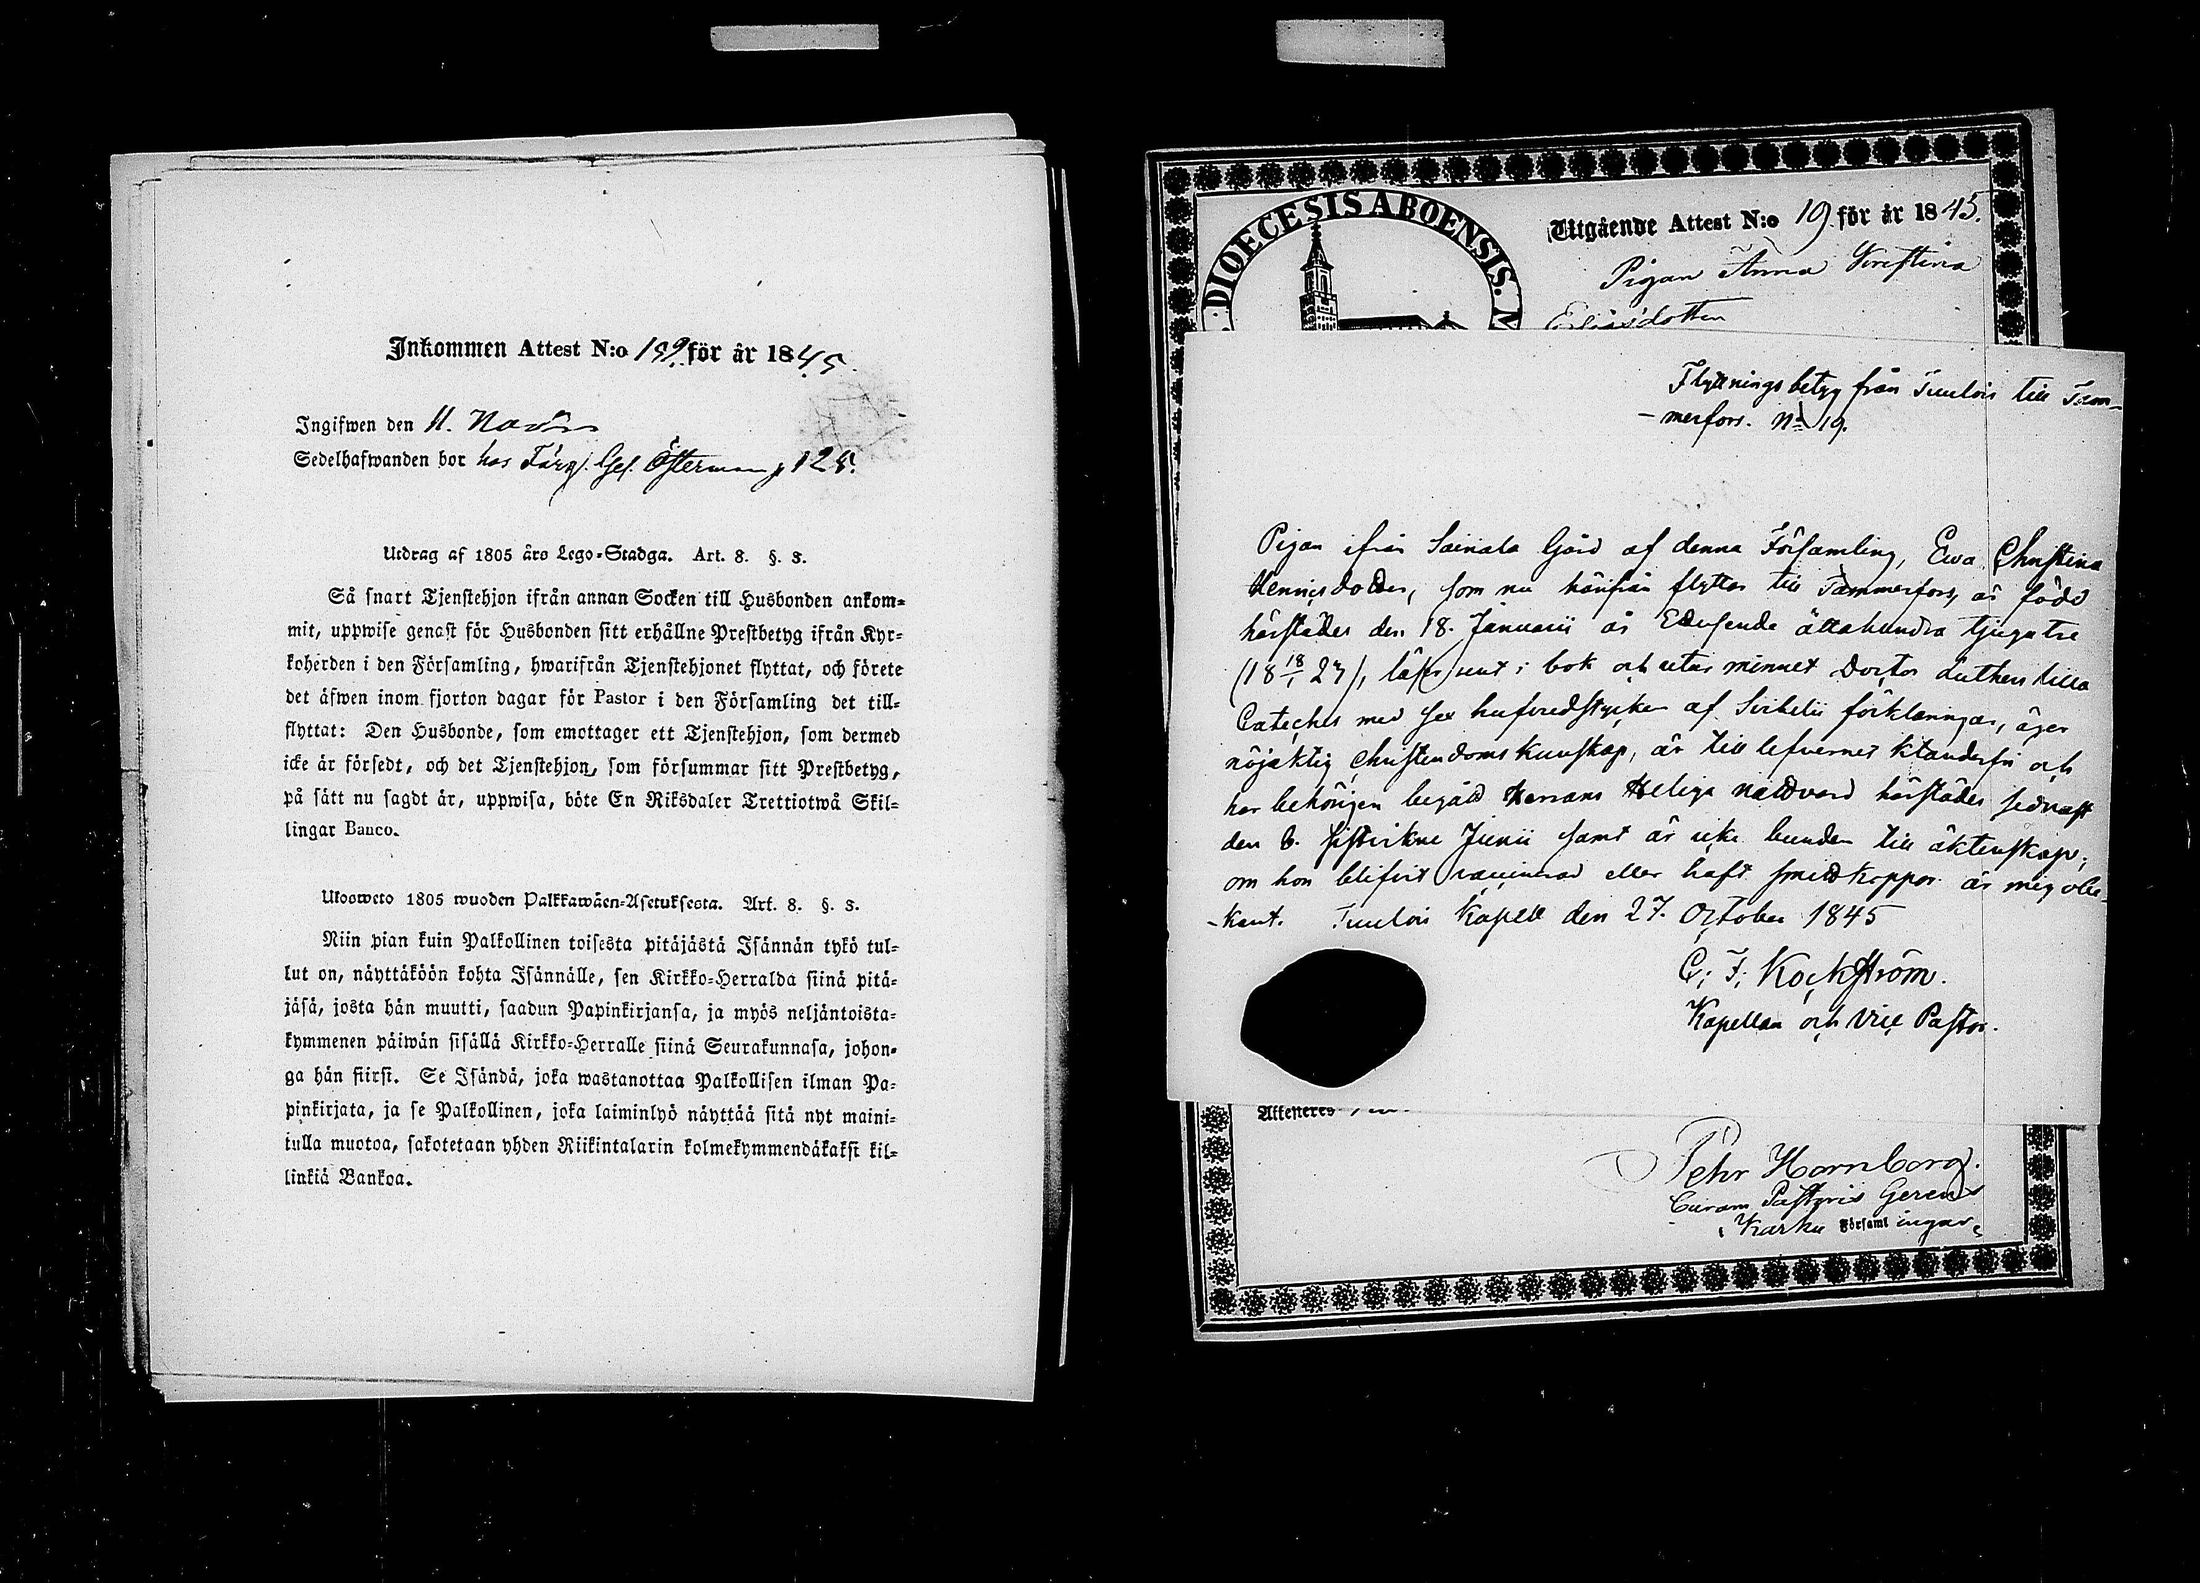 Inkommen Attest N:o 159. för år 1845.
Ingifwen den 11. Nov
Sedelhafwanden bor hos Färg. Ges. Österman, 128.
Utdrag af 1805 års Lego-Stadga. Art. 8. §. 3.
Så snart Tjenstehjon ifrån annan Socken till Husbonden ankom-
mit, uppwise genast för Husbonden sitt erhållne Prestbetyg ifrån Kyr-
koherden i den Församling, hwarifrån Tjenstehjonet flyttat, och förete
det äfwen inom fjorton dagar för Pastor i den Församling det till-
flyttat: Den Husbonde, som emottager ett Tjenstehjon, som dermed
icke är försedt, och det Tjenstehjon, som försummar sitt Prestbetyg,
på sätt nu sagdt är, uppwisa, böte En Riksdaler Trettiotwå Skil-
lingar Banco.
Ulosweto 1805 wuoden Palkkawäen-Asetuksesta. Art. 8. §. 3.
Niin pian kuin Palkollinen toisesta pitäjästä Isännän tykö tul-
lut on, näyttäköön kohta Isännälle, sen Kirkko-Herralda siinä pitä-
jäsä, josta hän muutti, saadun Papinkirjansa, ja myös neljäntoista-
kymmenen päiwän sisällä Kirkko-Herralle siinä Seurakunnasa, johon-
ga hän siirsi. Se Isändä, joka wastanottaa Palkollisen ilman Pa-
pinkirjata, ja se Palkollinen, joka laiminlyö näyttää sitä nyt maini-
tulla muotoa, sakotetaan yhden Riikintalarin kolmekymmendäkaksi kil-
linkiä Bankoa.
DIOECESIS ABOENSIS.
Utgående Attest N:o 19 för år 1845.
Pigan Anna Kristina
Eliasdotter
Flyttningsbetyg från Tuulois till Tam-
-merfors. No 19.
Pigan ifrån Sairiala Gård af denna Församling, Ewa Christina
Hennicsdotter, som nu härifrån flyttar till Tammerfors, är född
härstädes den 18. Januarii år Ettusende åttahundra tjugutre
(18 18/1 23), läser rent i bok och utur minnet Doctor Lutheri lilla
Cateches med sex hufvudstycken af Svebelii förklaringar, äger
nöjaktig Christendoms kunskap, är till lefvernet klanderfri och
har behörigen begått Herrans Heliga Nattvard härstädes sednast
den 8. sistvikne Junii samt är icke bunden till äktenskap;
om hon blifvit vaccinerad eller haft smittkoppor är mig obe-
-kant. Tuulois Kapell den 27. October 1845
C. F. Kockström.
Kapellan och Vice Pastor.
Attesteres
Pehr Hornborg.
Curam Pastoris Gerens
i Karku Församlingar.